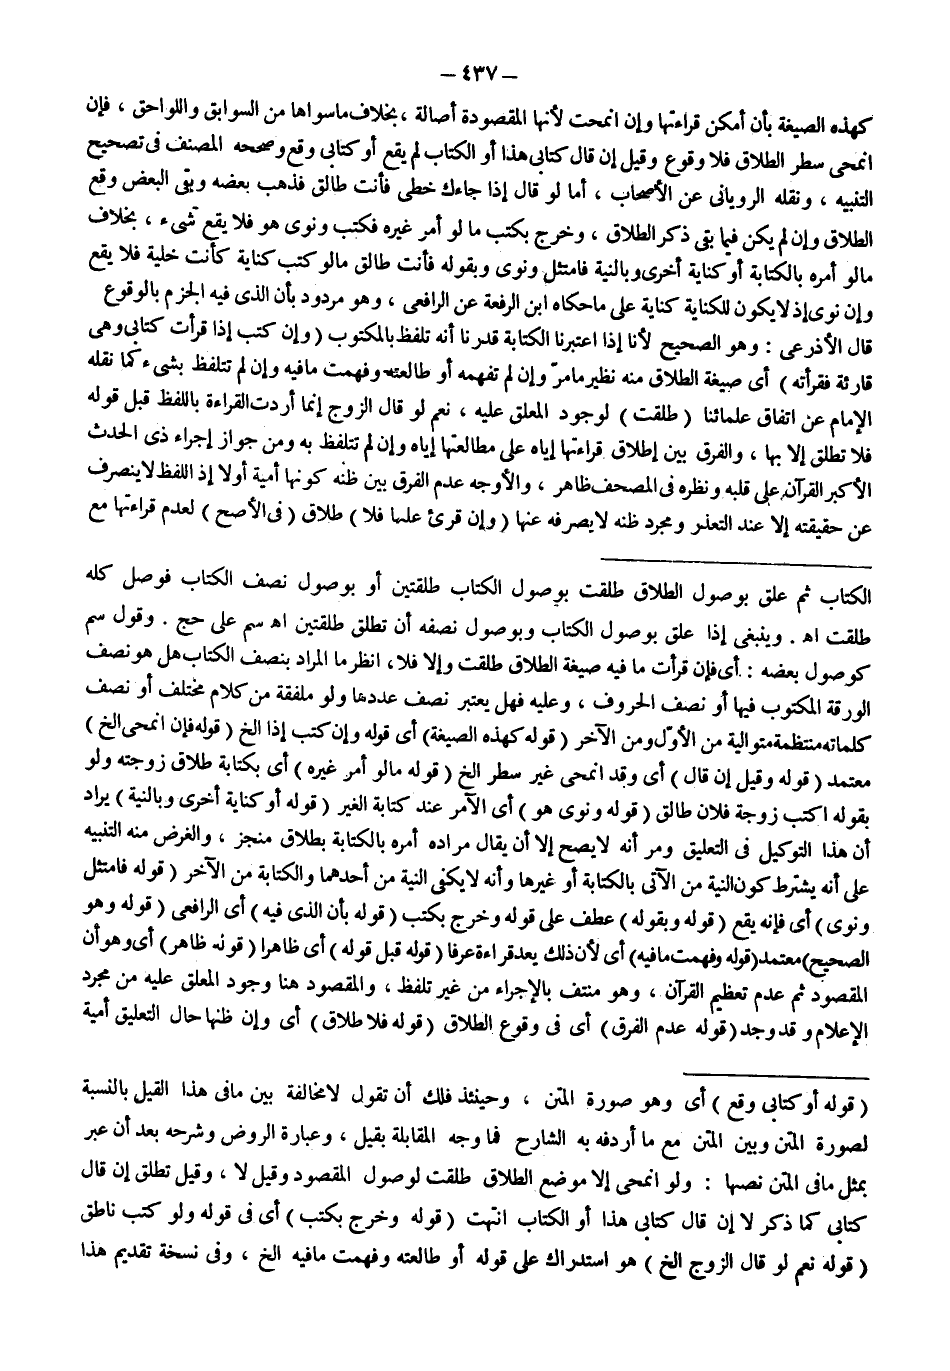 — ٤٣٧ —
كهذه الصيغة بأن أمكن قراءتها وإن انمحت لأنها المقصودة أصالة ، بخلاف ماسواها من السوابق واللواحق ، فإن
انمحى سطر الطلاق فلا وقوع وقيل إن قال كتابى هذا أو الكتاب لم يقع أو كتابى وقع وصححه المصنف فى تصحيح
التنبيه ، ونقله الرويانى عن الأصحاب ، أما لو قال إذا جاءك خطى فأنت طالق فذهب بعضه وبقى البعض وقع
الطلاق وإن لم يكن فيما بقى ذكر الطلاق ، وخرج بكتب ما لو أمر غيره فكتب ونوى هو فلا يقع شىء ، بخلاف
مالو أمره بالكتابة أو كناية أخرى وبالنية فامتثل ونوى وبقوله فأنت طالق مالو كتب كناية كأنت خلية فلا يقع
وإن نوى إذ لايكون للكناية كناية على ماحكاه ابن الرفعة عن الرافعى ، وهو مردود بأن الذى فيه الجزم بالوقوع
قال الأذرعى : وهو الصحيح لأنا إذا اعتبرنا الكتابة قدرنا أنه تلفظ بالمكتوب ( وإن كتب إذا قرأت كتابى وهى
قارئة فقرأته ) أى صيغة الطلاق منه نظير مامرّ وإن لم تفهمه أو طالعته وفهمت مافيه وإن لم تتلفظ بشىء كما نقله
الإمام عن اتفاق علمائنا ( طلقت ) لوجود المعلق عليه ، نعم لو قال الزوج إنما أردت القراءة باللفظ قبل قوله
فلا تطلق إلا بها ، والفرق بين إطلاق قراءتها إياه على مطالعتها إياه وإن لم تتلفظ به ومن جواز إجراء ذى الحدث
الأكبر القرآن على قلبه ونظره فى المصحف ظاهر ، والأوجه عدم الفرق بين ظنه كونها أمية أولا إذ اللفظ لاينصرف
عن حقيقته إلا عند التعذر ومجرد ظنه لايصرفه عنها ( وإن قرئ عليها فلا ) طلاق ( فى الأصح ) لعدم قراءتها مع
الكتاب ثم علق بوصول الطلاق طلقت بوصول الكتاب طلقتين أو بوصول نصف الكتاب فوصل كله
طلقت اه . وينبغى إذا علق بوصول الكتاب وبوصول نصفه أن تطلق طلقتين اه سم على حج . وقول سم
كوصول بعضه : أى فإن قرأت ما فيه صيغة الطلاق طلقت وإلا فلا، انظر ما المراد بنصف الكتاب هل هو نصف
الورقة المكتوب فيها أو نصف الحروف ، وعليه فهل يعتبر نصف عددها ولو ملفقة من كلام مختلف أو نصف
كلماته منتظمة متوالية من الأوّل ومن الآخر ( قوله كهذه الصيغة) أى قوله وإن كتب إذا الخ ( قوله فإن انمحى الخ )
معتمد ( قوله وقيل إن قال ) أى وقد انمحى غير سطر الخ ( قوله مالو أمر غيره ) أى بكتابة طلاق زوجته ولو
بقوله اكتب زوجة فلان طالق ( قوله ونوى هو ) أى الآمر عند كتابة الغير ( قوله أو كناية أخرى وبالنية ) يراد
أن هذا التوكيل فى التعليق ومر أنه لايصح إلا أن يقال مراده أمره بالكتابة بطلاق منجز ، والغرض منه التنبيه
على أنه يشترط كون النية من الآتى بالكتابة أو غيرها وأنه لايكفى النية من أحدهما والكتابة من الآخر ( قوله فامتثل
ونوى ) أى فإنه يقع ( قوله وبقوله ) عطف على قوله وخرج بكتب ( قوله بأن الذى فيه ) أى الرافعى ( قوله وهو
الصحيح) معتمد (قوله وفهمت مافيه) أى لأن ذلك يعد قراءة عرفا ( قوله قبل قوله ) أى ظاهرا ( قوله ظاهر) أى وهو أن
المقصود ثم عدم تعظيم القرآن ، وهو منتف بالإجراء من غير تلفظ ، والمقصود هنا وجود المعلق عليه من مجرد
الإعلام وقد وجد ( قوله عدم الفرق) أى فى وقوع الطلاق ( قوله فلا طلاق ) أى وإن ظنها حال التعليق أمية
( قوله أو كتابى وقع ) أى وهو صورة المتن ، وحينئذ فلك أن تقول لامخالفة بين مافى هذا القيل بالنسبة
لصورة المتن وبين المتن مع ما أردفه به الشارح فما وجه المقابلة بقيل ، وعبارة الروض وشرحه بعد أن عبر
بمثل مافى المتن نصها : ولو انمحى إلا موضع الطلاق طلقت لوصول المقصود وقيل لا ، وقيل تطلق إن قال
كتابى كما ذكر لا إن قال كتابى هذا أو الكتاب انتهت ( قوله وخرج بكتب ) أى فى قوله ولو كتب ناطق
( قوله نعم لو قال الزوج الخ ) هو استدراك على قوله أو طالعته وفهمت مافيه الخ ، وفى نسخة تقديم هذا